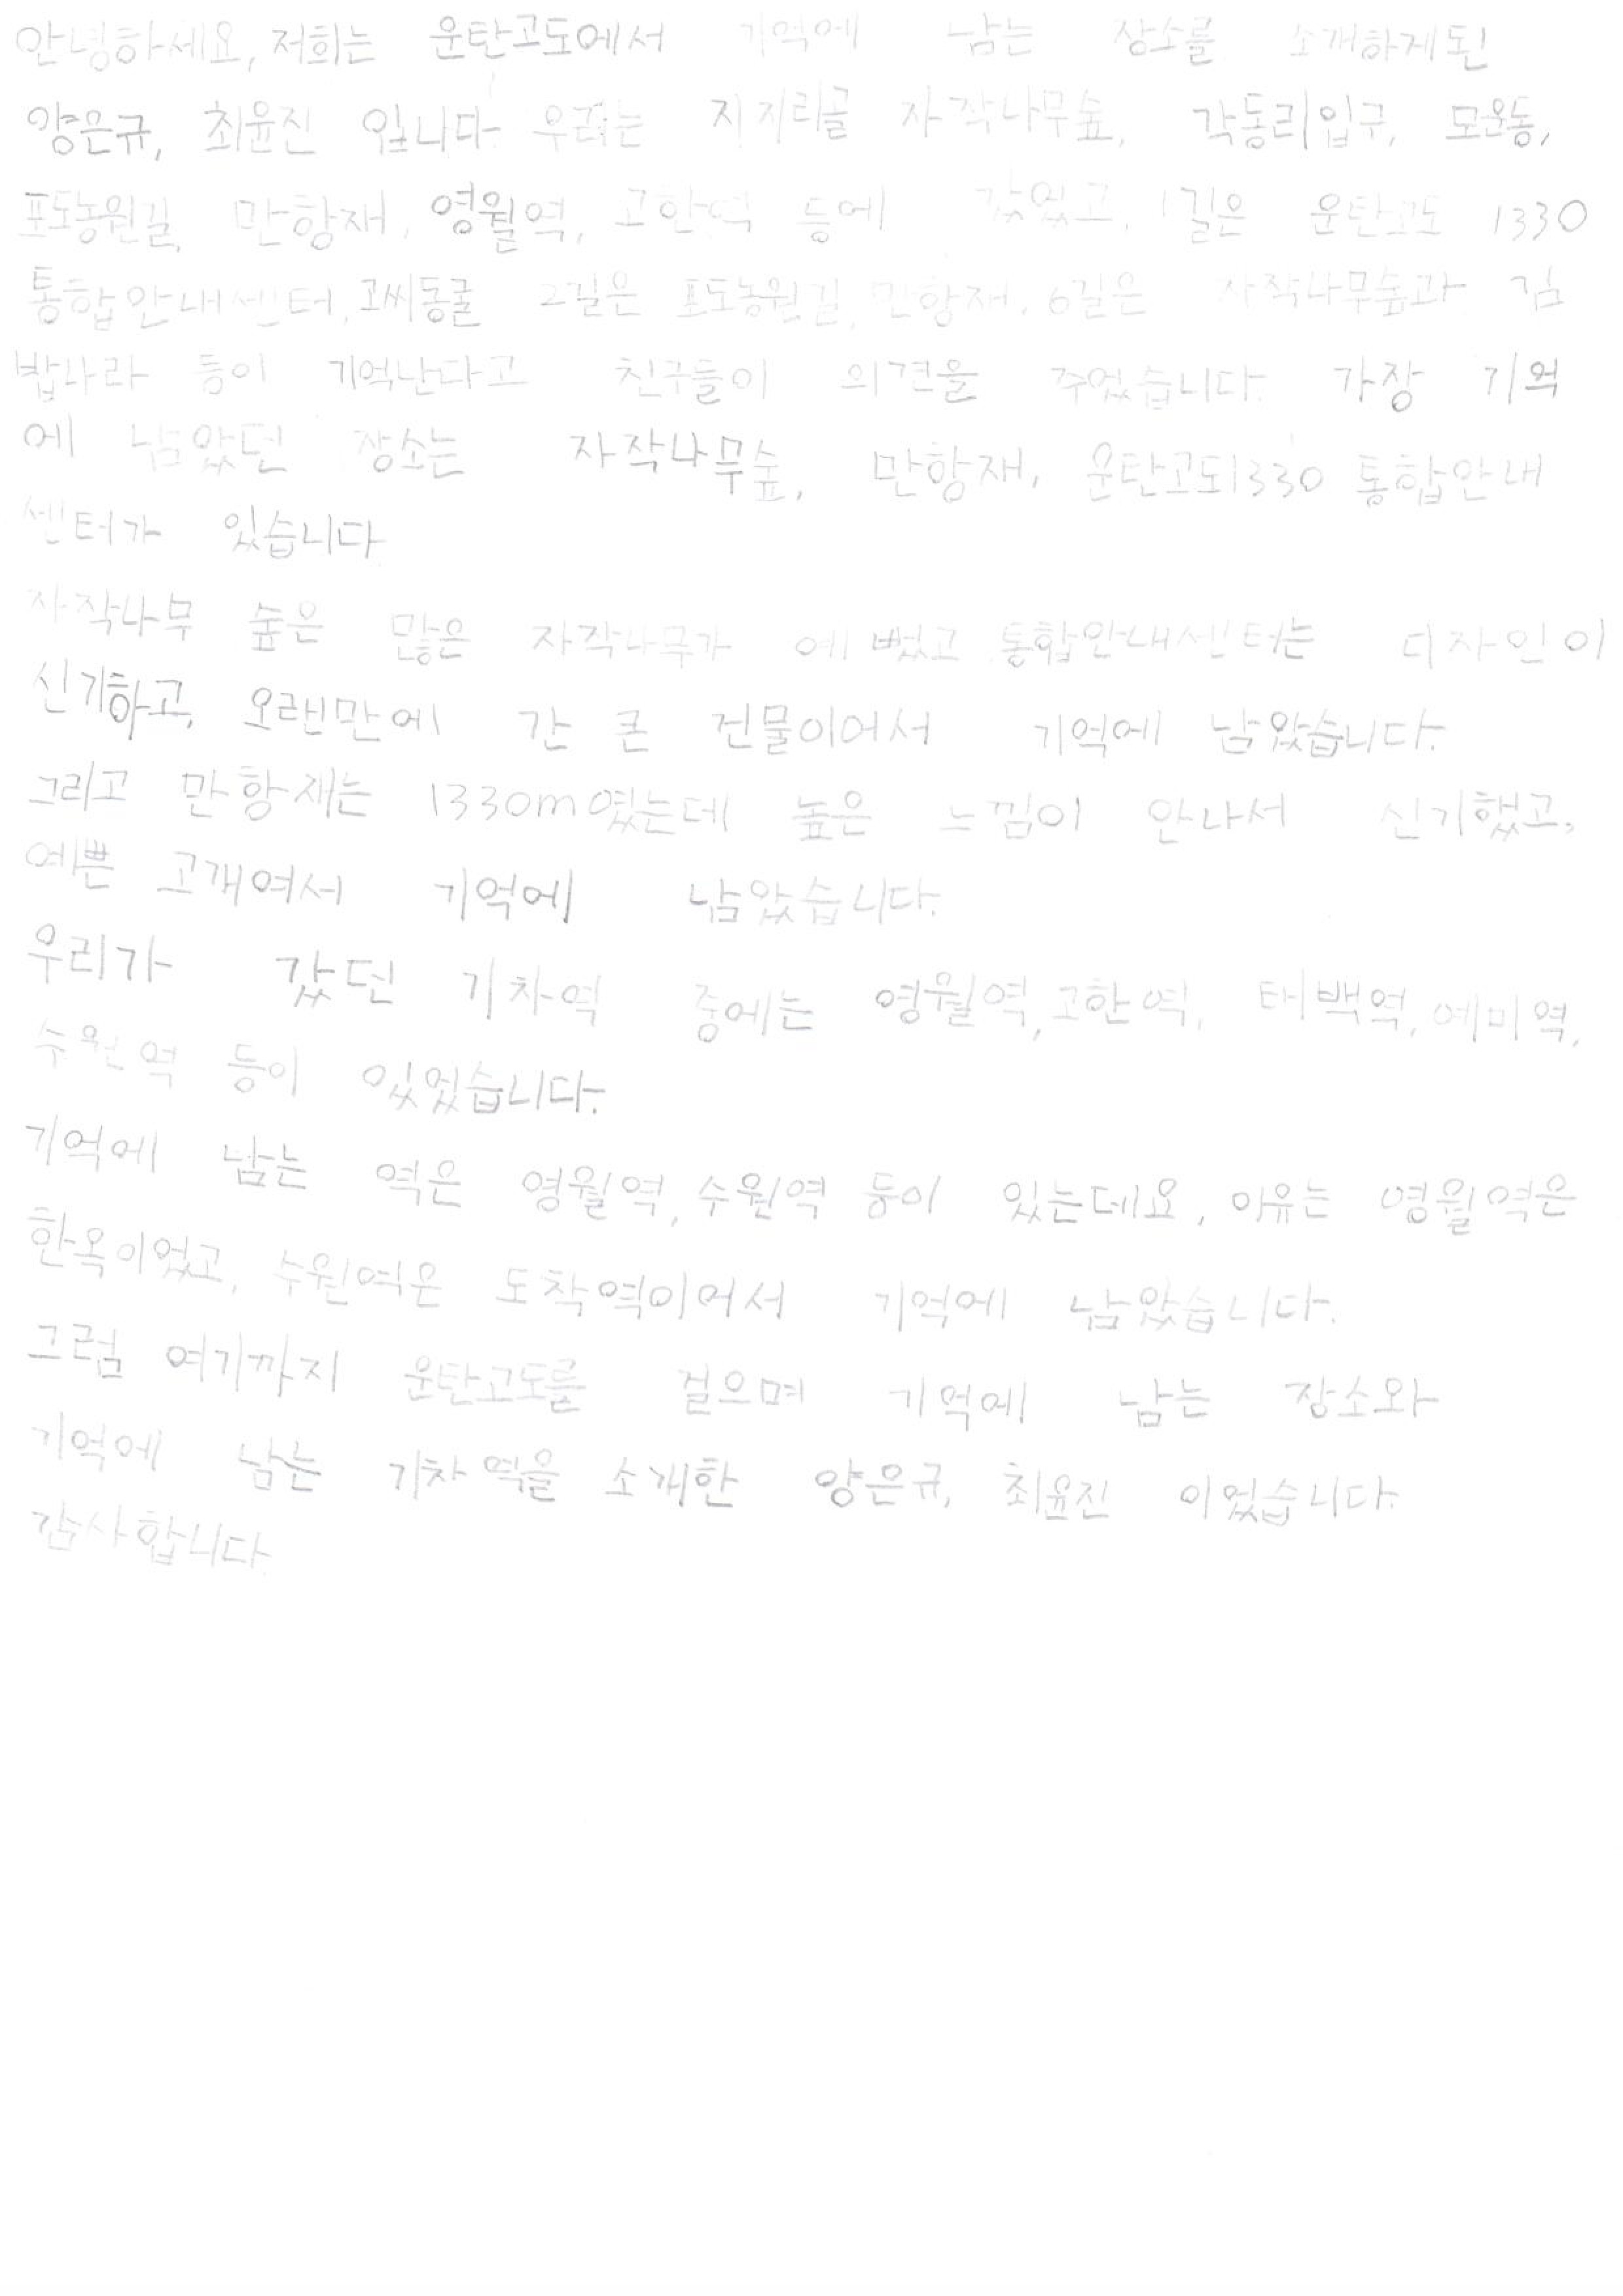 안녕하세요, 저희는 운탄고도에서 기억에 남는 장소를 소개하게된
양은규, 최윤진 입니다. 우리는 지지리골 자작나무숲, 각동리입구, 모운동,
포도농원길, 만항재, 영월역, 고한역 등에 갔었고, 1길은 운탄고도 1330
통합안내센터, 고씨동굴 2길은 포도농원길, 만항재, 6길은 자작나무숲과 김
밥나라 등이 기억난다고 친구들이 의견을 주었습니다. 가장 기억
에 남았던 장소는 자작나무숲, 만항재, 운탄고도1330 통합안내
센터가 있습니다.
자작나무 숲은 많은 자작나무가 예뻤고 통합안내센터는 디자인이
신기하고, 오랜만에 간 큰 건물이어서 기억에 남았습니다.
그리고 만항재는 1330m였는데 높은 느낌이 안나서 신기했고,
예쁜 고개여서 기억에 남았습니다.
우리가 갔던 기차역 중에는 영월역, 고한역, 태백역, 예미역,
수원역 등이 있었습니다.
기억에 남는 역은 영월역, 수원역 등이 있는데요, 이유는 영월역은
한옥이었고, 수원역은 도착역이어서 기억에 남았습니다.
그럼 여기까지 운탄고도를 걸으며 기억에 남는 장소와
기억에 남는 기차역을 소개한 양은규, 최윤진 이었습니다.
감사합니다.